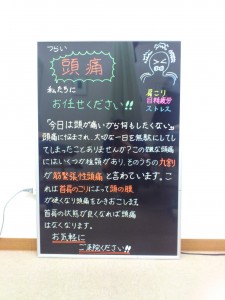 つらい
頭痛
私たちに
お任せください!!
肩こり
目精疲労
ストレス
「今日は頭が痛いから何もしたくない」
頭痛に悩まされ、大切な一日を無駄にしてし
てしまったことありませんか?この嫌な頭痛
にはいくつか種類があり、そのうちの九割
が筋緊張性頭痛と言わています。こ
れは首肩のこりによって頭の膜
が硬くなり頭痛をひきおこします。
首肩の状態が良くなれば頭痛
はなくなります。
お気軽に
ご来院ください!!